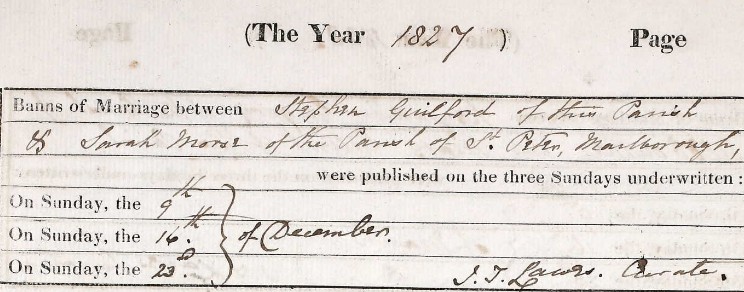 (The Year 1827) Page
Banns of Marriage between Stephen Guilford of this Parish
& Sarah Morse of the Parish of St. Peter, Marlborough,
were published on the three Sundays underwritten :
On Sunday, the 9th
On Sunday, the 16th. of December.
On Sunday, the 23d.
J. T. Lawes. Curate.